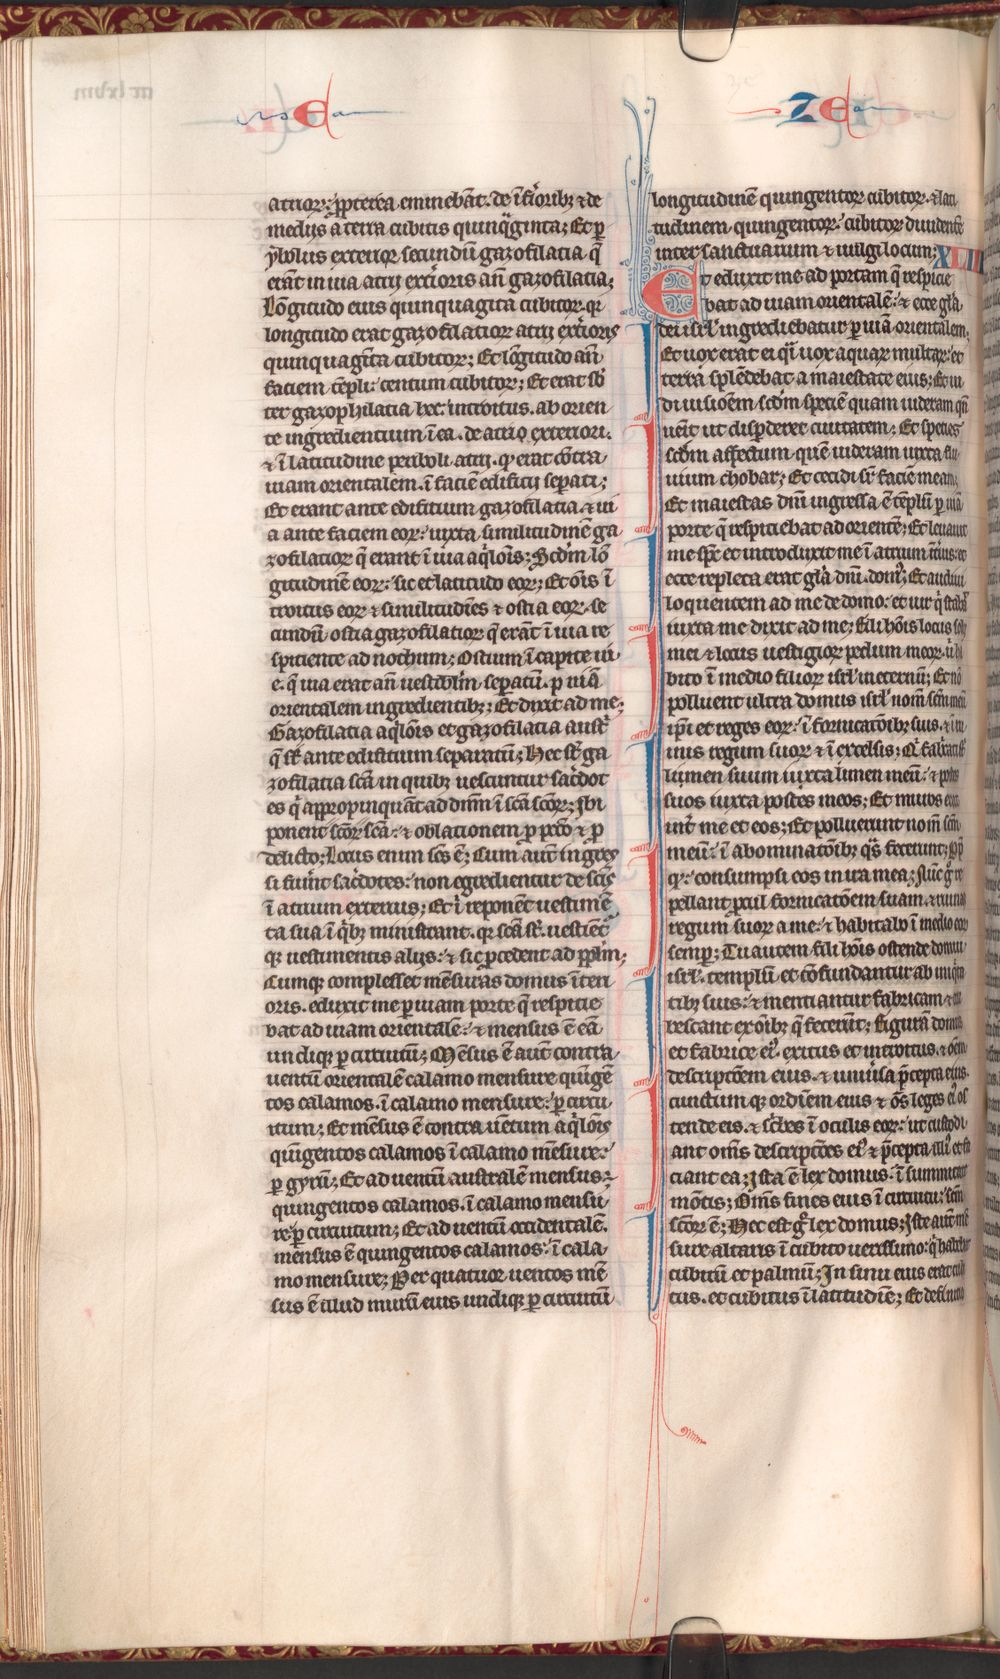 E
ZE
atrioꝝ: ꝓpterea eminebāt. de ĩferioribꝫ ⁊ de
medijs a terra cubitis quinq̃ginta; Et ꝑ
ybolus exterior secundū gazofilatia q̃
erāt in uia atrij exterioris an̄ gazofilatia;
Lōgitudo eius quinquagīta cubitoꝝ. qꝛ
longitudo erat gazofilatioꝝ atrij exterioris
quinquagīta cubitoꝝ; Et lōgitudo an̄
faciem tēpli: centum cubitoꝝ; Et erat sb̄
ter gazophilatia hec. introitus. ab orien
te ingredientium ĩ ea. de atrio exteriori.
⁊ ĩ latitudine periboli atrij. q̄ erat cōtra
uiam orientalem. ĩ faciē edificij sepati;
Et erant ante edifitium gazofilatia ⁊ ui
a ante faciem eoꝝ: iuxta similitudinē ga
zofilatioꝝ q̃ erant ĩ uia aq̃lōis; Scdm̄ lō
gitudinē eoꝝ: sic et latitudo eoꝝ; Et ōis ĩ
troitus eoꝝ ⁊ similitudīes ⁊ ostia eoꝝ. se
cundū ostia gazofilatioꝝ q̃ erāt ĩ uia re
spiciente ad nothum; Ostium ĩ capite ui
e. q̃ uia erat an̄ uestiblm̄ sepatū. ꝑ uiā
orientalem ingredientibꝫ; Et dixit ad me;
Gazofilatia aq̃lōis et gazofilatia austr̄
q̃ st̄ ante edifitium separatū; Hec st̄ ga
zofilatia scā in quibꝫ uescuntur sac̄dot
es q̃ appropinquāt ad dn̄m ĩ scā scōꝝ; Ibi
ponent scōꝝ scā: ⁊ oblationem ꝓ pccō ⁊ ꝓ
delicto; Locus enim scs̄ ē; Cum aut̄ ingres
si fuīnt sac̄dotes: non egredientur de scīs
ĩ atrium exterius; Et ĩ reponēt uestimē
ta sua ĩ q̃bꝫ ministrant. qꝛ scā st̄. uestient
qꝫ uestimentis alijs: ⁊ sic ꝓcedent ad pplm̄;
Cumqꝫ complesset mēsuras domus ĩteri
oris. eduxit me ꝑ uiam porte q̃ respitie
bat ad uiam orientalē: ⁊ mensus ē eā
undiqꝫ ꝑ circuitū; Mēsus ē aut̄ contra
uentū orientalē calamo mensure quīgē
tos calamos. ĩ calamo mensure: ꝑ circu
itum; Et mēsus ē contra uētum aq̃lōis
quīgentos calamos ĩ calamo mēsure:
ꝑ gyrū; Et ad uentū australē mensus:
quingentos calamos. ĩ calamo mensu
re: ꝑ circuitum; Et ad uentū occidentalē.
mensus ē quingentos calamos: ĩ cala
mo mensure; Per quatuor uentos mē
sus ē illud murū eius undiqꝫ ꝑ circuitū
longitudinē quingentoꝝ cubitoꝝ. ⁊ lati
tudinem quingentoꝝ: cubitoꝝ diuidentē
inter sanctuarium ⁊ uulgi locum; XLIII
Et eduxit me ad portam q̃ respicie
bat ad uiam orientalē: ⁊ ecce glā
dei isrl' ingrediebatur ꝑ uiā orientalem;
Et uox erat ei q̃i uox aquaꝝ multaꝝ: et
terra splēdebat a maiestate eius; Et ui
di uisioēm scdm speciē quam uideram qn̄
uēit ut disꝑderet ciuitatem; Et species
scdm aspectum quē uideram iuxta flu
uium chobar; Et cecidi sr̄ faciē meam;
Et maiestas dn̄i ingressa ē tēplū ꝑ uiā
porte q̃ respitiebat ad orientē; Et leuauit
me spc̄ et introduxit me ĩ atrium īterius: et
ecce repleta erat glā dn̄i domꝰ; Et audiui
loquentem ad me de domo: et uir q̃ stabat
iuxta me dixit ad me; Fili hōis locus solij
mei ⁊ locus uestigioꝝ pedum meoꝝ. ubi
bito ĩ medio filioꝝ isrl' in eternū; Et nō
polluent ultra domus isrl' nom̄ scm̄ meū
ipi et reges eoꝝ: ĩ fornicatōibꝫ suis. ⁊ ĩ ru
inis regum suoꝝ ⁊ ĩ excelsis; Q̄i fab̄cati st̄
lumen suum iuxta limen meū: ⁊ postes
suos iuxta postes meos; Et murus erat
int̄ me et eos; Et polluerunt nom̄ scm̄
meū: ĩ abominatōibꝫ q̄s fecerunt; Pp̄
qꝫ: consumpsi eos in ira mea; Nūc g̊ re
pellant ꝓcul fornicatōem suam. ⁊ ruinas
regum suoꝝ a me: ⁊ habitabo ĩ medio eoꝝ
semꝑ; Tu autem fili hōis ostende domui
isrl'. templū et cōfundantur ab iniq̃ta
tibꝫ suis: ⁊ mentiantur fabricam ⁊ eru
bescant ex ōibꝫ q̃ fecerūt; Figurā domus
et fabrice eiꝰ. exitus et introitus. ⁊ oēm
descriptōem eius. ⁊ uniu̇sa p̄cepta eius.
cunctum qꝫ ordīem eius ⁊ ōs leges eiꝰ os
tende eis. ⁊ sc̄bes ĩ oculis eoꝝ: ut custodi
ant om̄s descriptōes eiꝰ ⁊ p̄cepta illiꝰ et fa
ciant ea; Ista ē lex domus. ĩ summitate
mōtis; Om̄s fines eius ĩ circuitu: scm̄
scōꝝ ē; Hec est g̊ lex domus; Iste aut̄ mē
sure altaris ĩ cubito uerissimo: q̃ habebat
cubitū et palmū; In sinu eius erat cubi
tus. et cubitus ĩ latitudīe; Et definitio